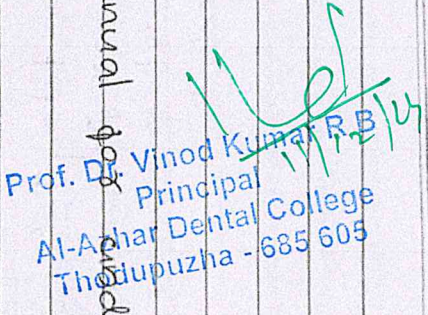 Prof. Dr. Vinod Kumar R.B
Principal
Al-Azhar Dental College
Thodupuzha - 685 605
nual for